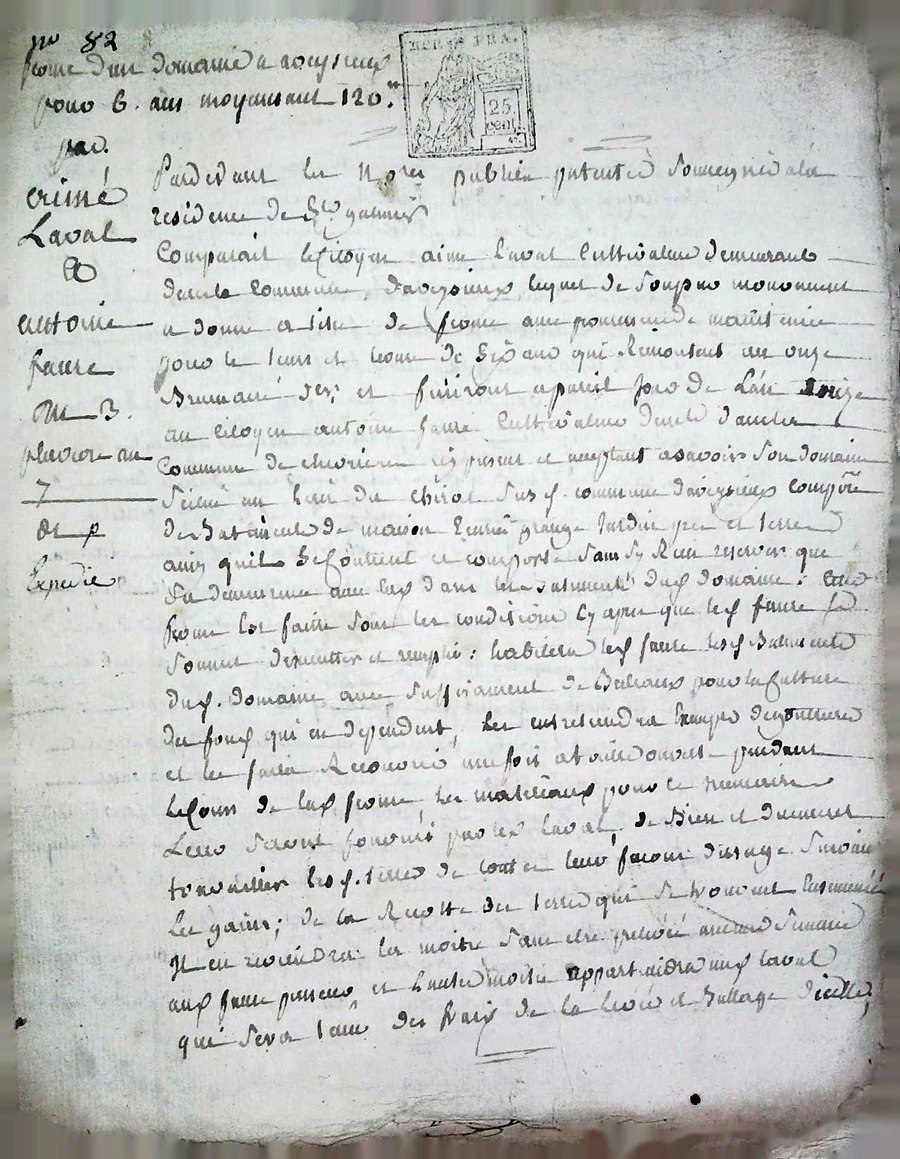 no 82
ferme d'un domaine a aveysieux
pour 6. ans moyennant 120.
par.
aimé
Laval
A
antoine
faure
du 3.
pluviose an
7
dt p
Expédié
REP. FRA.
25
cent
Pardevant les No.res publics patenté soussigné a la
residence de St galmier
Comparait le Citoyen aimé Laval Cultivateur demeurant
dans la Commune d'aveysieux lequel de son pur mouvement
a donné a titre de ferme avec promesse de maintenir
pour le tems et terme de six ans qui Remontent au onze
Brumaire der. et finiront a pareil jour de L'an
au Citoyen antoine faure Cultivateur de la
Commune de chevrieres icy present et acceptant asavoir son domaine
situé au lieu du chirat susd. commune d'aveysieux composé
de Batiments de maison Ecurie grange Jardin pré et terre
ainsy quils se Contient et comporte sans sy Rien reserver que
sa demeurance avec led dans les batiments dud domaine: cette
ferme est faitte sous les conditions cy apres que led faure
promet d'executter et remplir: habittera led faure lesd Batiments
dud. domaine avec suffisamment de Bestiaux pour la Culture
des fonds qui en dependent, les entretiendra
et les faira Recouvrir une fois a taille ouverte pendant
le Cours de lad ferme, les materiaux pour ce necessaire
Leur seront fournis par led Laval, de Bien et duement
travailler lesd. terres de toutes leurs façons d'usage suivant
les gains; de la Recolte des terres qui se trouvent Ensemencés
Il en reviendra la moitié sans etre prelevé aucune semance
aud faure preneur et L'autre moitié appartiendra aud laval
qui sera tenu des frais de la levée et Battage d'icelle;